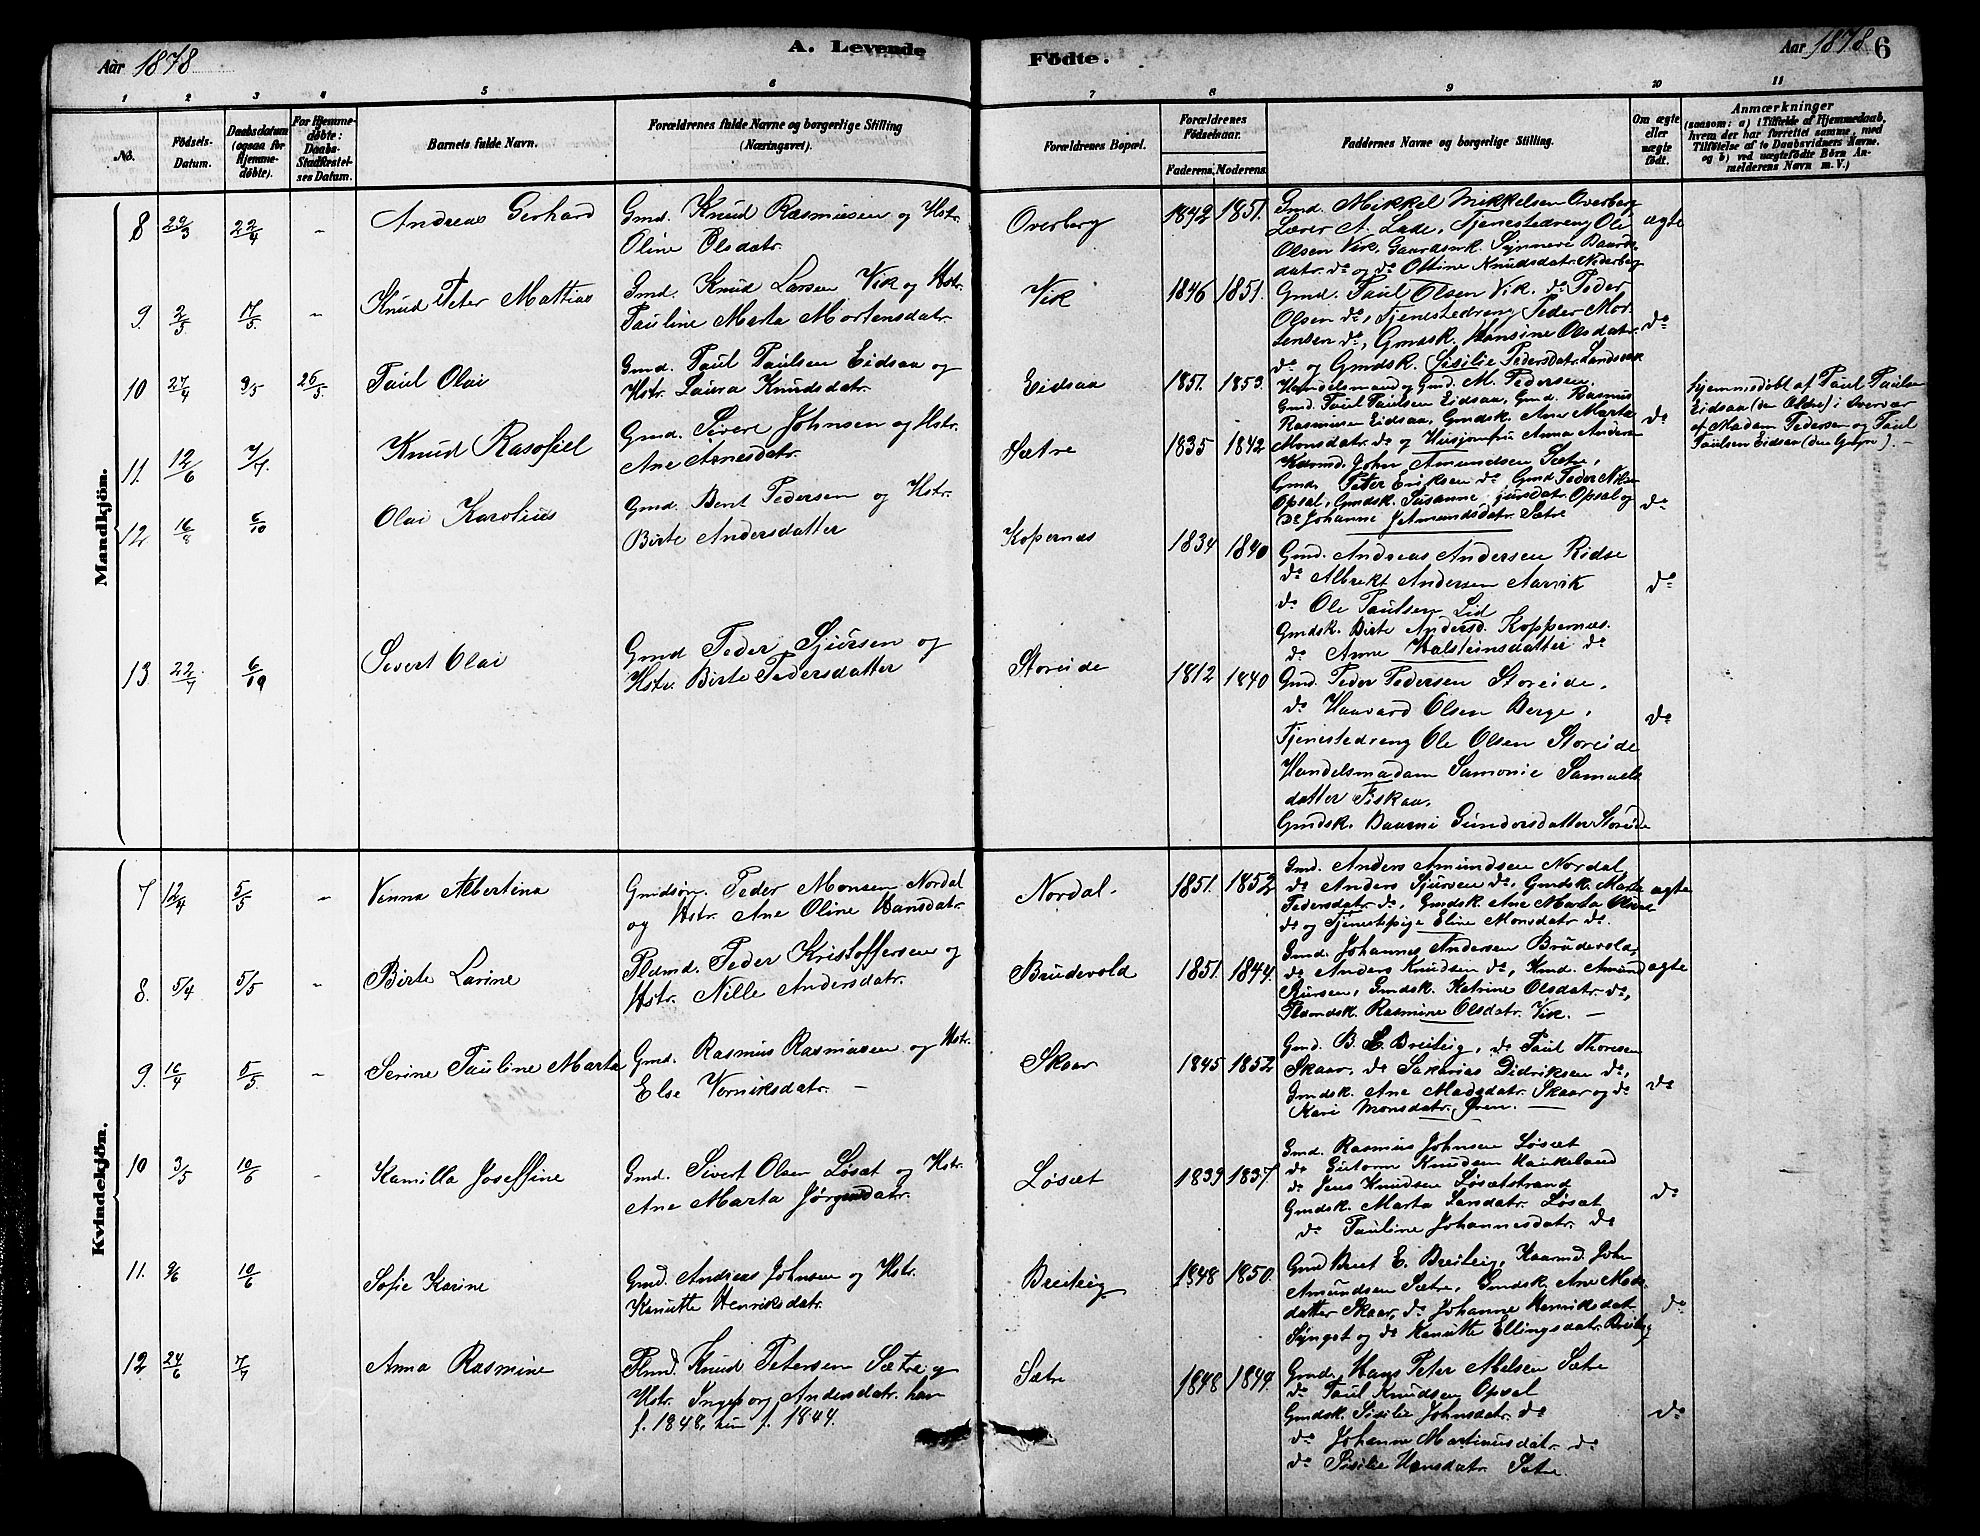 Aar 1878
A. Levende
Födte.
Aar 1878
6
1 2 3 4 5 6 7 8 9 10 11
No.
Födsels-Datum.
Daabsdatum (ogsaa for Hjemmedöbte).
For Hjemmedöbte: Daabs-Stadfæstelses Datum.
Barnets fulde Navn.
Forældrenes fulde Navne og borgerlige Stilling (Næringsvei).
Forældrenes Bopæl.
Forældrenes Födselsaar.
Faderens. Moderens.
Faddernes Navne og borgerlige Stilling.
Om ægte eller uægte födt.
Anmærkninger
(saasom: a) i Tilfælde af Hjemmedaab,
hvem der har forrettet samme, med
Tilföielse af to Daabsvidners Navne,
og b) ved uægtefödte Börn An-
melderens Navn m. V.)
Mandkjön.
8 29/3 22/4 - Andreas Gerhard
Gmd. Knud Rasmussen og Hstr.
Oline Olsdatr.
Overberg 1842 1851.
Gmd. Mikkel Mikkelsen Overberg
Lærer A. Lade, Tjenestedreng Ole
Olsen Vik, Gaardmk. Synneve Baards-
datr. do og do Ottine Knudsdatr. Nederberg
ægte
9. 2/5 17/5 - Knud Peter Mattias
Gmd. Knud Larsen Vik og Hstr.
Pauline Marta Mortensdatr.
Vik 1846 1851.
Gmd. Paul Olsen Vik. do Peder
Olsen do, Tjenestedreng Peder Mor
tensen do, Gmdsk. Hansine Olsdatr.
do og Gmdsk. Sisilie Pedersdatr. Landsvik
do
10 27/4 9/5 26/5. Paul Olai
Gmd. Paul Paulsen Eidsaa og
Hstr. Laura Knudsdatr.
Eidsaa 1851. 1853.
Handelsmand og Gmd. M. Pedersen.
Gmd. Paul Paulsen Eidsaa, Gmd. Rasmus
Rasmusen Eidsaa, Gmdsk. Ane Marte
Monsdatr. do og Husjomfru Anna Anders
do
hjemmedøbt af Paul Paulsen
Eidsaa (den Ældre) i Overvær
af Madam Pedersen og Paul
Paulsen Eidsaa (den Yngre). -
11. 12/6 7/7. Knud Rasofiel
Gmd. Sivert Johnsen og Hstr.
Ane Arnesdatr.
Sætre 1835 1842
Kaarmd. John Amundsen Sætre,
Gmd. Peter Eriksen do, Gmd. Peder Nils
Opsal, Gmdsk. Susanne Sjursdatr. Opsal og
do Johanne J. Amundsdatr. Sætre
do
12 16/8 6/10 Olai Karolius
Gmd. Bent Pedersen og Hstr.
Birte Andersdatter
Kopernæs 1834 1840
Gmd. Andreas Andersen Ridse
do Albrekt Andersen Aarvik
do Ole Paulsen Lid
Gmdsk. Birte Andersd. Koppernæs.
do Anne Halsteinsdatter do
do
13 22/7 6/10 Sivert Olai
Gmd Peder Sjursen og
Hstr. Birte Pedersdatter
Storeide 1812 1840
Gmd. Peder Pedersen Storeide.
do Haavard Olsen Berge,
Tjenestedreng Ole Olsen Storeide
Handelsmadam Samonie Samuels
datter Fiskaa.
Gmdsk. Baarni Gundersdatter Storeide
do
Kvindekjön.
7 12/4 5/5 - Venna Albertina
Gmdsøn. Peder Monsen Nordal
og Hstr. Ane Oline Hansdatr.
Nordal. 1851. 1852
Gmd. Anders Amundsen Nordal
do Anders Sjursen do, Gmdsk. Marte
Pedersdatr. do, Gmdsk. Ane Marta Olsdatr
do og Tjenestpige Eline Monsdatr. do.
ægte
8. 5/4 5/5 - Birte Larine
Pldmd. Peder Kristoffersen og
Hstr. Nille Andersdatr.
Brudevold 1851. 1844.
Gmd. Johannes Andersen Brudevold,
do Anders Knudsen do, Kmd. Amund
Sjursen, Gmdsk. Katrine Olsdatr. do,
Pldmdsk. Rasmine Olsdatr. Vik. -
ægte
9. 16/4 5/5 - Serine Pauline Marta
Gmd. Rasmus Rasmussen og Hstr.
Else Verniksdatr. -
Skaar 1845 1852
Gmd. B. E. Breiteig, do Paul Thoresen
Skaar, do Sakarias Didriksen do,
Gmdsk. Ane Madsdatr. Skaar og do
Kari Monsdatr. Øren. -
do
10 3/5 10/6 - Kamilla Joseffine
Gmd. Sivert Olsen Løsæt og Hstr.
Ane Marta Jørgensdatr.
Løsæt 1839 1837.
Gmd. Rasmus Johnsen Løsæt
do Guttorm Knudsen Haukeland
do Jens Knudsen Løsætstrand
Gmdsk. Marta Larsdatr. Løsæt
do Pauline Johannesdatr. do
do
11. 9/6 10/6 Sofie Karine
Gmd. Andreas Johnsen og Hstr.
Kanutte Henriksdatr.
Breiteig 1848 1850.
Gmd Bent E. Breiteig, Kaarmd. John
Amundsen Sætre, Gmdsk. Ane Mads-
datter Skaar, do Johanne Henriksdat.
Synget og do Kanutte Ellingsdatr. Breiteig
do
12 24/6 7/7 Anna Rasmine
Plmd. Knud Petersen Sætre og
Hstr. Ingeborg Andersdatr. han
f. 1848, hun f. 1844.
Sætre 1848 1844.
Gmd. Hans Peter Nilsen Sætre
do Paul Knudsen Opsal
Gmdsk. Sisilie Johnsdatr. do
do Johanne Martinusdatr. do
do Sisilie Hansdatr. Sætre.
do